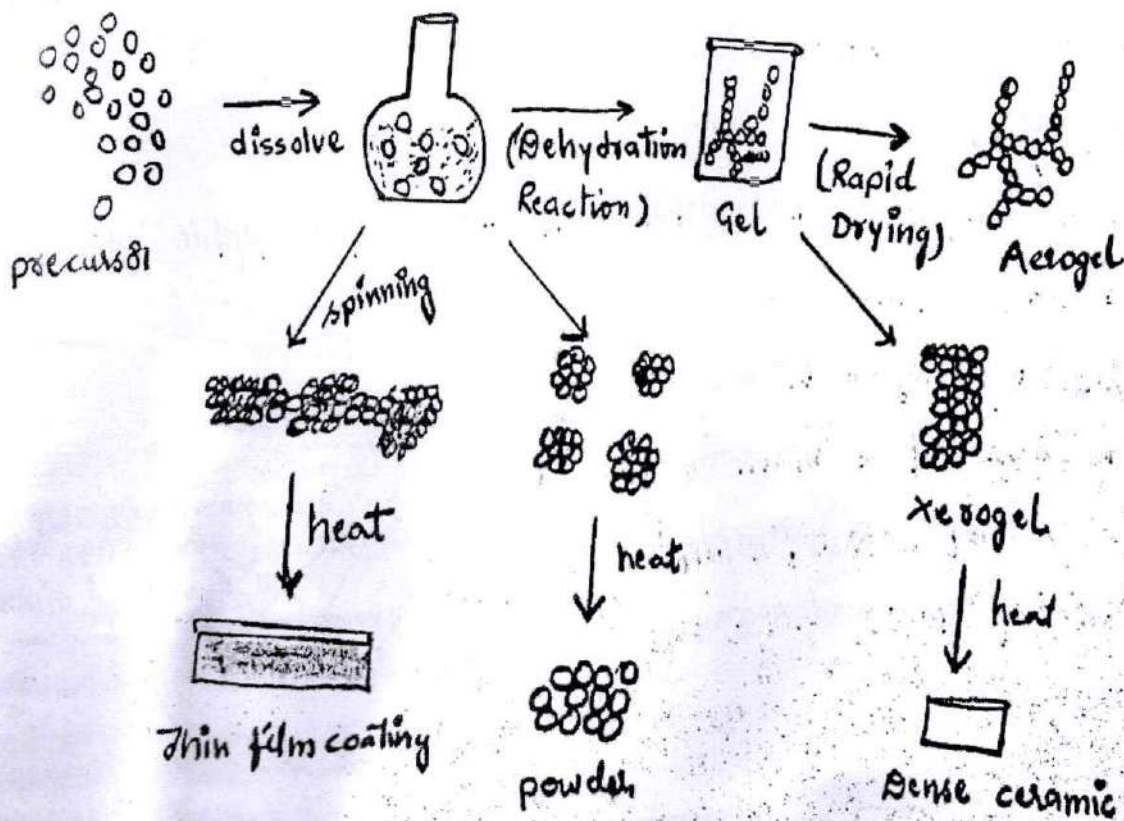 precursor
dissolve
(Dehydration
Reaction)
Gel
(Rapid
Drying)
Aerogel
spinning
heat
heat
Xerogel
heat
Thin film coating
powder
Dense ceramic